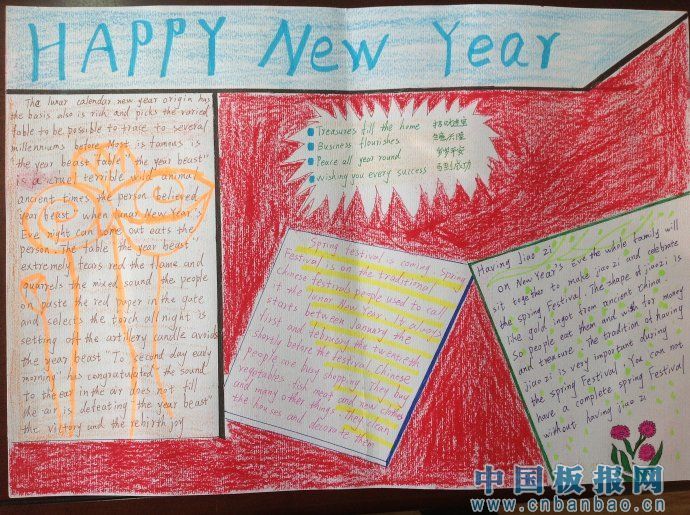 HAPPY New Year
The lunar calendar new year origin has
the basis also is rich and picks the varied
fable to be possible to trace to several
millenniums before. Most is famous is
the year beast fable "the year beast"
is a cruel terrible wild animal,
ancient times the person believed
year beast when lunar New Year's
Eve night can come out eats the
person. The table the year beast"
extremely fears red the flame and
quarrels the mixed sound the people
on paste the red paper in the gate
and selects the torch all night is
setting off the artillery candle avoids
the year beast "To second day early
morning" has congratulated the sound
to the ear in the air does not fill
the air is defeating the year beast"
the victory and the rebirth joy
Treasures fill the home 招财进宝
Business flourishes 生意兴隆
Peace all year round 岁岁平安
wishing you every success 马到成功
Spring festival is coming Spring
Festival is on the traditional
Chinese festivals People used to call
it the lunar New Year. It always
starts between January the
first and february the twentieth
shortly before the festival, Chinese
people are busy shopping. They buy
vegetables fish meat and new clothes
and many other things. They clean
the houses and decorate them
Having Jiao zi
on New Year's Eve the whole family will
sit together to make jiao zi and celebrate
the spring Festival. The shape of jiaozi is
like gold ingot from ancient china.
So people eat them and wish for money
and treasure. The tradition of having
Jiao zi is very important during
the spring Festival. You can not
have a complete spring Festival
without having jiao zi
中国板报网
www.cnbanbao.cn